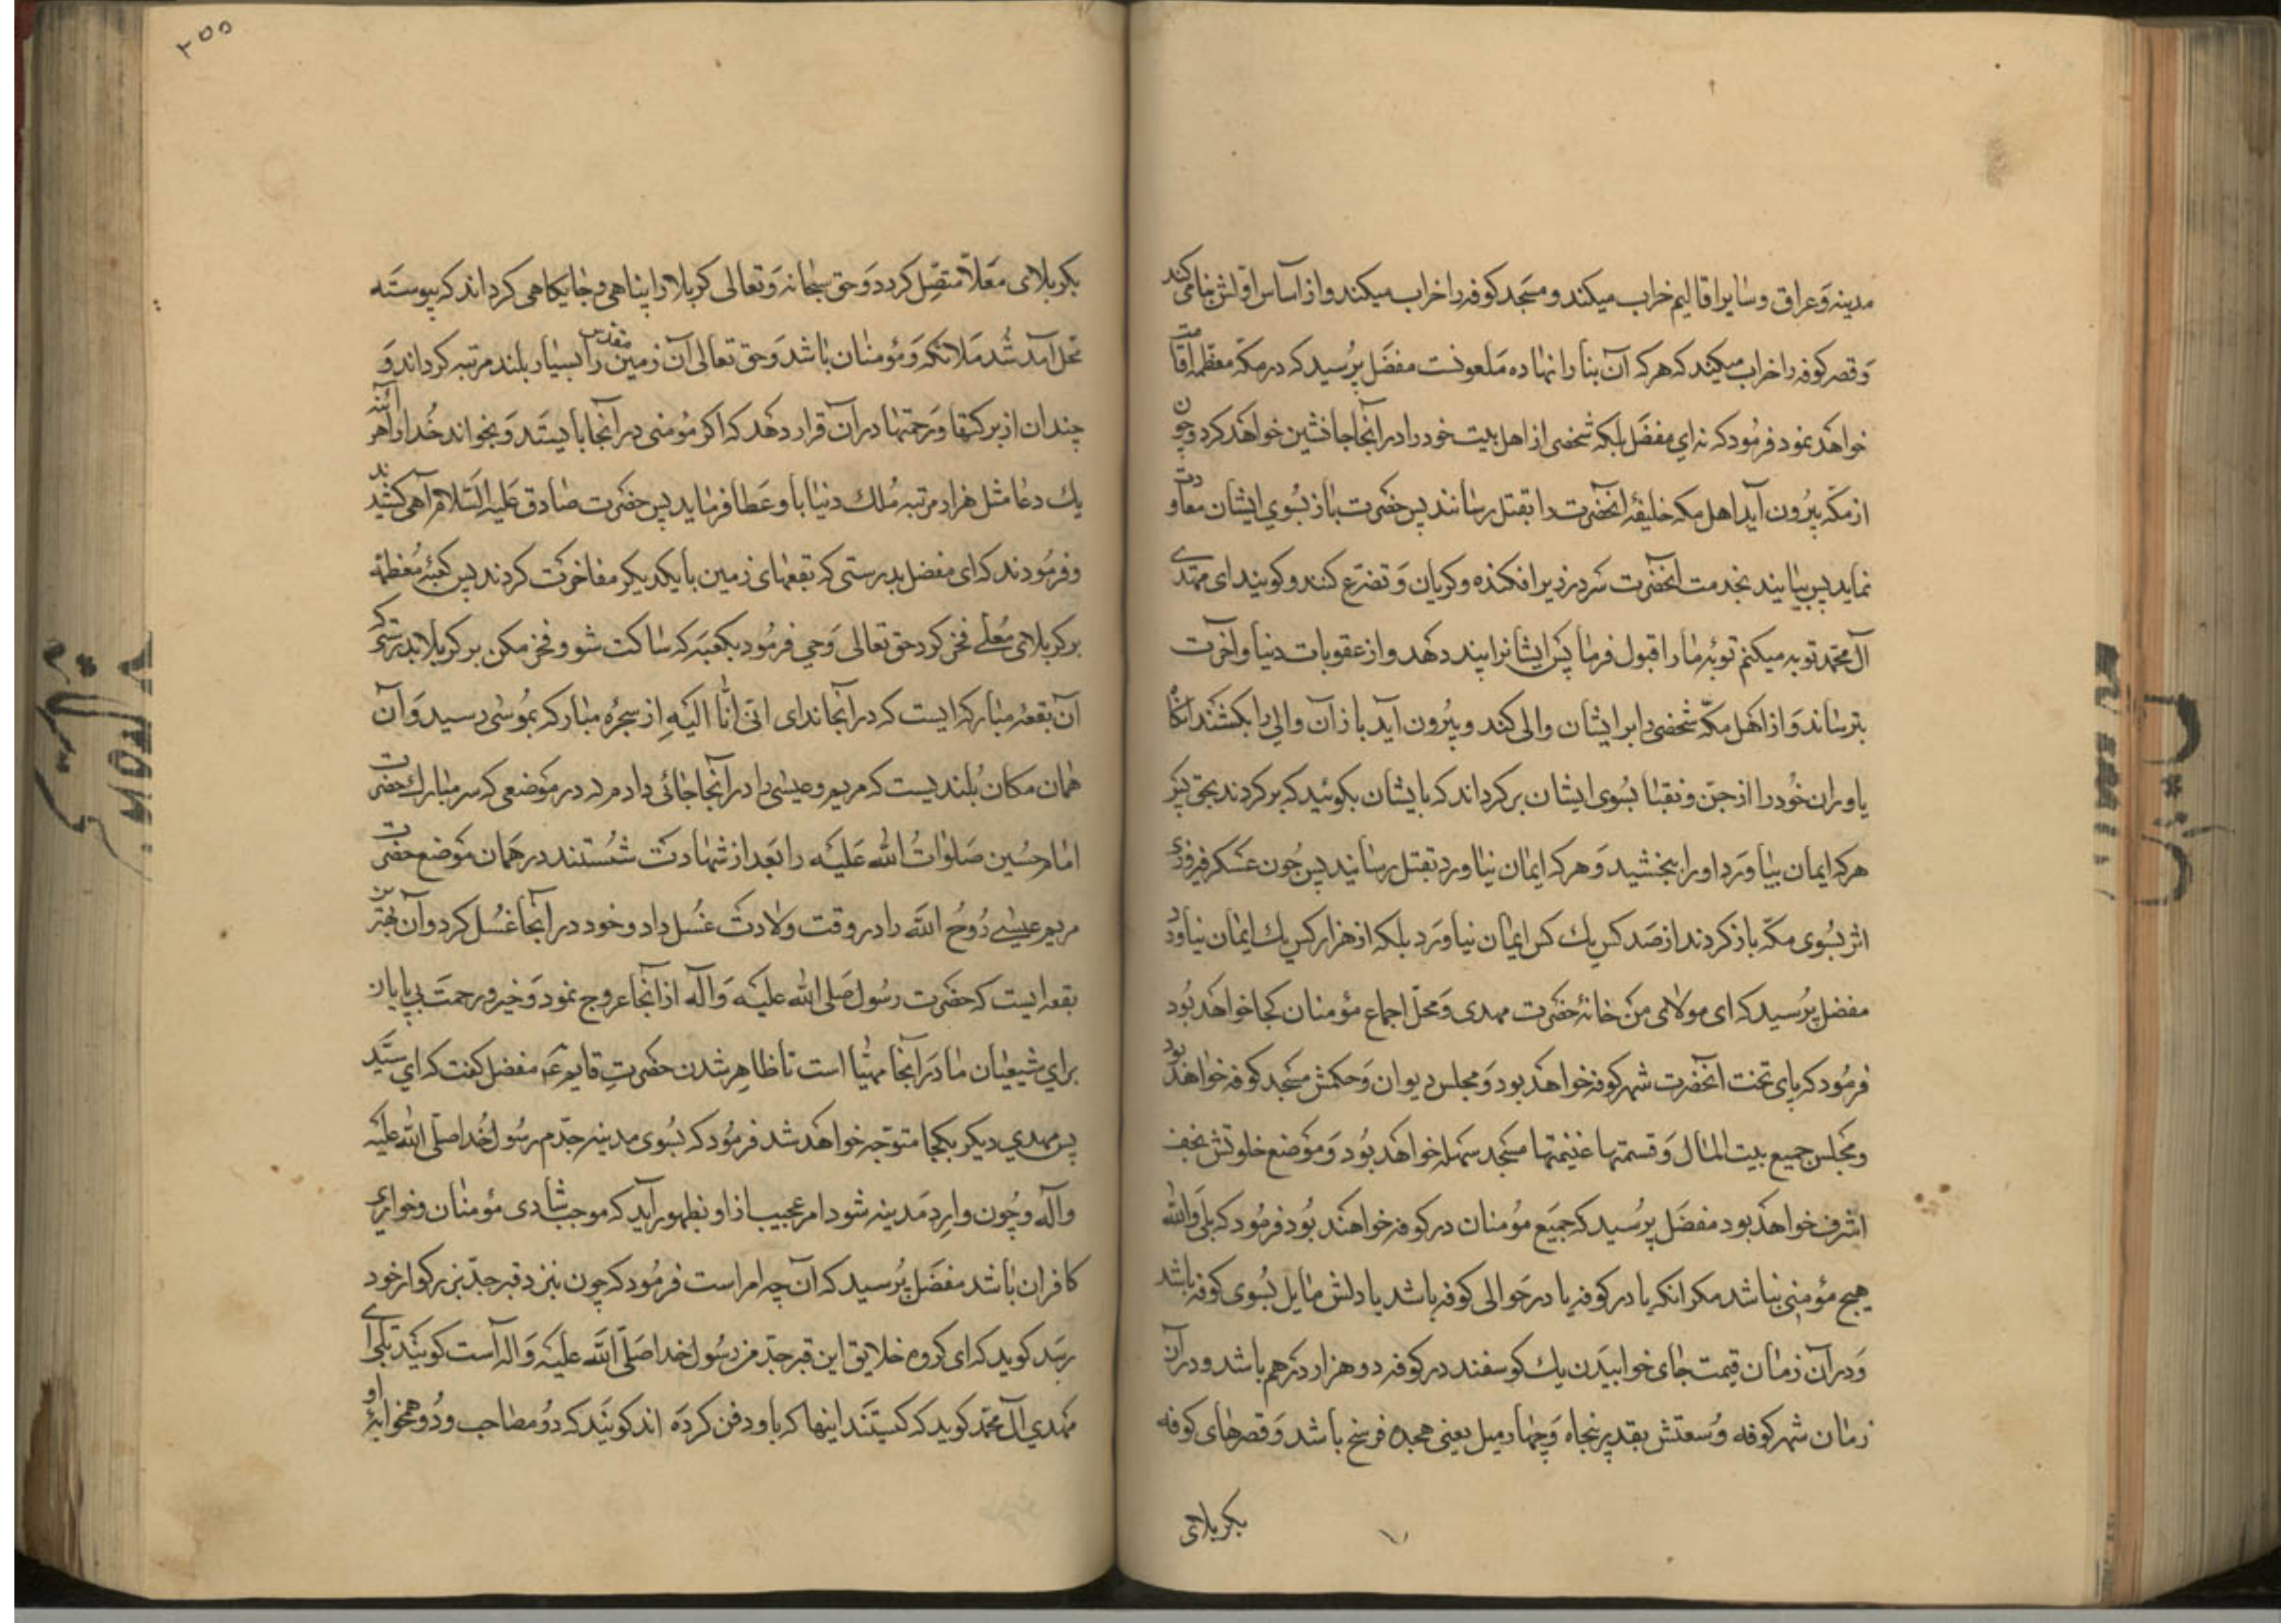 مدینه وعراق وسایر اقالیم خراب میکند ومسجد کوفه را خراب میکند واز اساس اولش بنا می کند
وقصر کوفه را خراب میکند که هر که آن بنا را نهاده ملعونست مفضل پرسید که در مکه معظمه اقامت
خواهد نمود فرمود که نه ای مفضل بلکه شخصی از اهل بیت خود را در آنجا جانشین خواهد کرد وچون
از مکه بیرون آید اهل مکه خلیفهٔ آنحضرت را بقتل رسانند پس حضرت باز بسوی ایشان معاودت
نماید پس بیایند بخدمت آنحضرت سر در زیر افکنده وکریان وتضرع کنند وکویند ای مهتدی
آل محمد توبه میکنم توبهٔ مارا قبول فرما پس ایشانرا پند دهد واز عقوبات دنیا وآخرت
بترساند واز اهل مکه شخصی را بر ایشان والی کند وبیرون آید باز آن والی را بکشند آنگاه
یاوران خود را از جن ونقبا بسوی ایشان برکرداند که بایشان بکوئید که برکردند بحق پس
هر که ایمان بیاورد اورا ببخشید وهر که ایمان نیاورد بقتل رسانید پس چون عسکر فیروزی
اثر بسوی مکه باز کردند از صد کس یك کس ایمان نیاورد بلکه از هزار کس یك ایمان نیاورد
مفضل پرسید که ای مولای من خانهٔ حضرت مهدی ومحل اجماع مؤمنان کجا خواهد بود
فرمود که پای تخت آنحضرت شهر کوفه خواهد بود ومجلس دیوان وحکمش مسجد کوفه خواهد بود
ومجلس جمیع بیت المال وقسمتها غنیمتها مسجد سهله خواهد بود وموضع خلوتش نجف
اشرف خواهد بود مفضل پرسید که جمیع مؤمنان در کوفه خواهند بود فرمود که بلی والله
هیچ مؤمنی نباشد مکر انکه یا در کوفه یا در حوالی کوفه باشد یا دلش مایل بسوی کوفه باشد
ودر آن زمان قیمت جای خوابیدن یك کوسفند در کوفه دو هزار درهم باشد ودر آن
زمان شهر کوفه وسعتش بقدر پنجاه وچهار میل یعنی هجده فرسخ باشد وقصرهای کوفه
بکربلای
۲۵۵
بکربلای معلا متصل کردد وحق سبحانه وتعالی کربلا را پناهی وجایکاهی کرداند که پیوسته
محل آمد شد ملائکه ومؤمنان باشد وحق تعالی آن زمین مقدس را بسیار بلند مرتبه کرداند و
چندان از برکتها ورحمتها در آن قرار دهد که اکر مؤمنی در آنجا بایستد وبخواند خدا را هر آینه
یك دعا مثل هزار مرتبه ملك دنیا باو عطا فرماید پس حضرت صادق علیه السلام آهی کشیدند
وفرمودند که ای مفضل بدرستی که بقعهای زمین بایکدیکر مفاخرت کردند پس کعبهٔ معظمه
بر کربلای معلی فخر کرد حق تعالی وحی فرمود بکعبه که ساکت شو وفخر مکن بر کربلا بدرستی که
آن بقعه مبارکه ایست که در آنجا ندای انی انا الله از سجرهٔ مبارکه بموسی رسید وآن
همان مکان بلندیست که مریم وعیسی را در آنجا جائی دادم در موضعی که سر مبارك حضرت
امام حسین صلوات الله علیه را بعد از شهادت شستند در همان موضع حضرت
مریم عیسی روح الله را در وقت ولادت غسل داد وخود در آنجا غسل کرد وآن بهترین
بقعه ایست که حضرت رسول صلی الله علیه وآله از آنجا عروج نمود وخیر ورحمت بی پایان
برای شیعیان ما در آنجا مهیا است تا ظاهر شدن حضرت قایم ع مفضل کفت که ای سید
پس مهدی دیکر بکجا متوجه خواهد شد فرمود که بسوی مدینه جدم رسول خدا صلی الله علیه
وآله وچون وارد مدینه شود امر عجیب از او بظهور آید که موجب شادی مؤمنان وخواری
کافران باشد مفضل پرسید که آن چه امر است فرمود که چون بنزد قبر جد بزرکوار خود
رسد کوید که ای کروه خلایق این قبر جد من رسول خدا صلی الله علیه واله است کویند بلی ای
مهدی آل محمد کوید که کیستند اینها که باو دفن کرده اند کویند که دو مصاحب ودو همخوابهٔ او